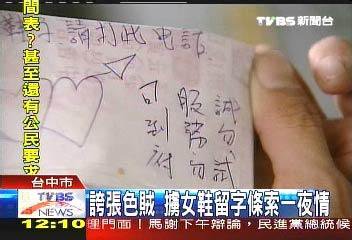 TVBS新聞台
間表？甚至還有公民要求
請打此電話
可到府
服務勿
誠勿試
台中市
TVBS
NEWS
誇張色賊 擄女鞋留字條索一夜情
12:10
理門面！馬謝下午辯論，民進黨總統候